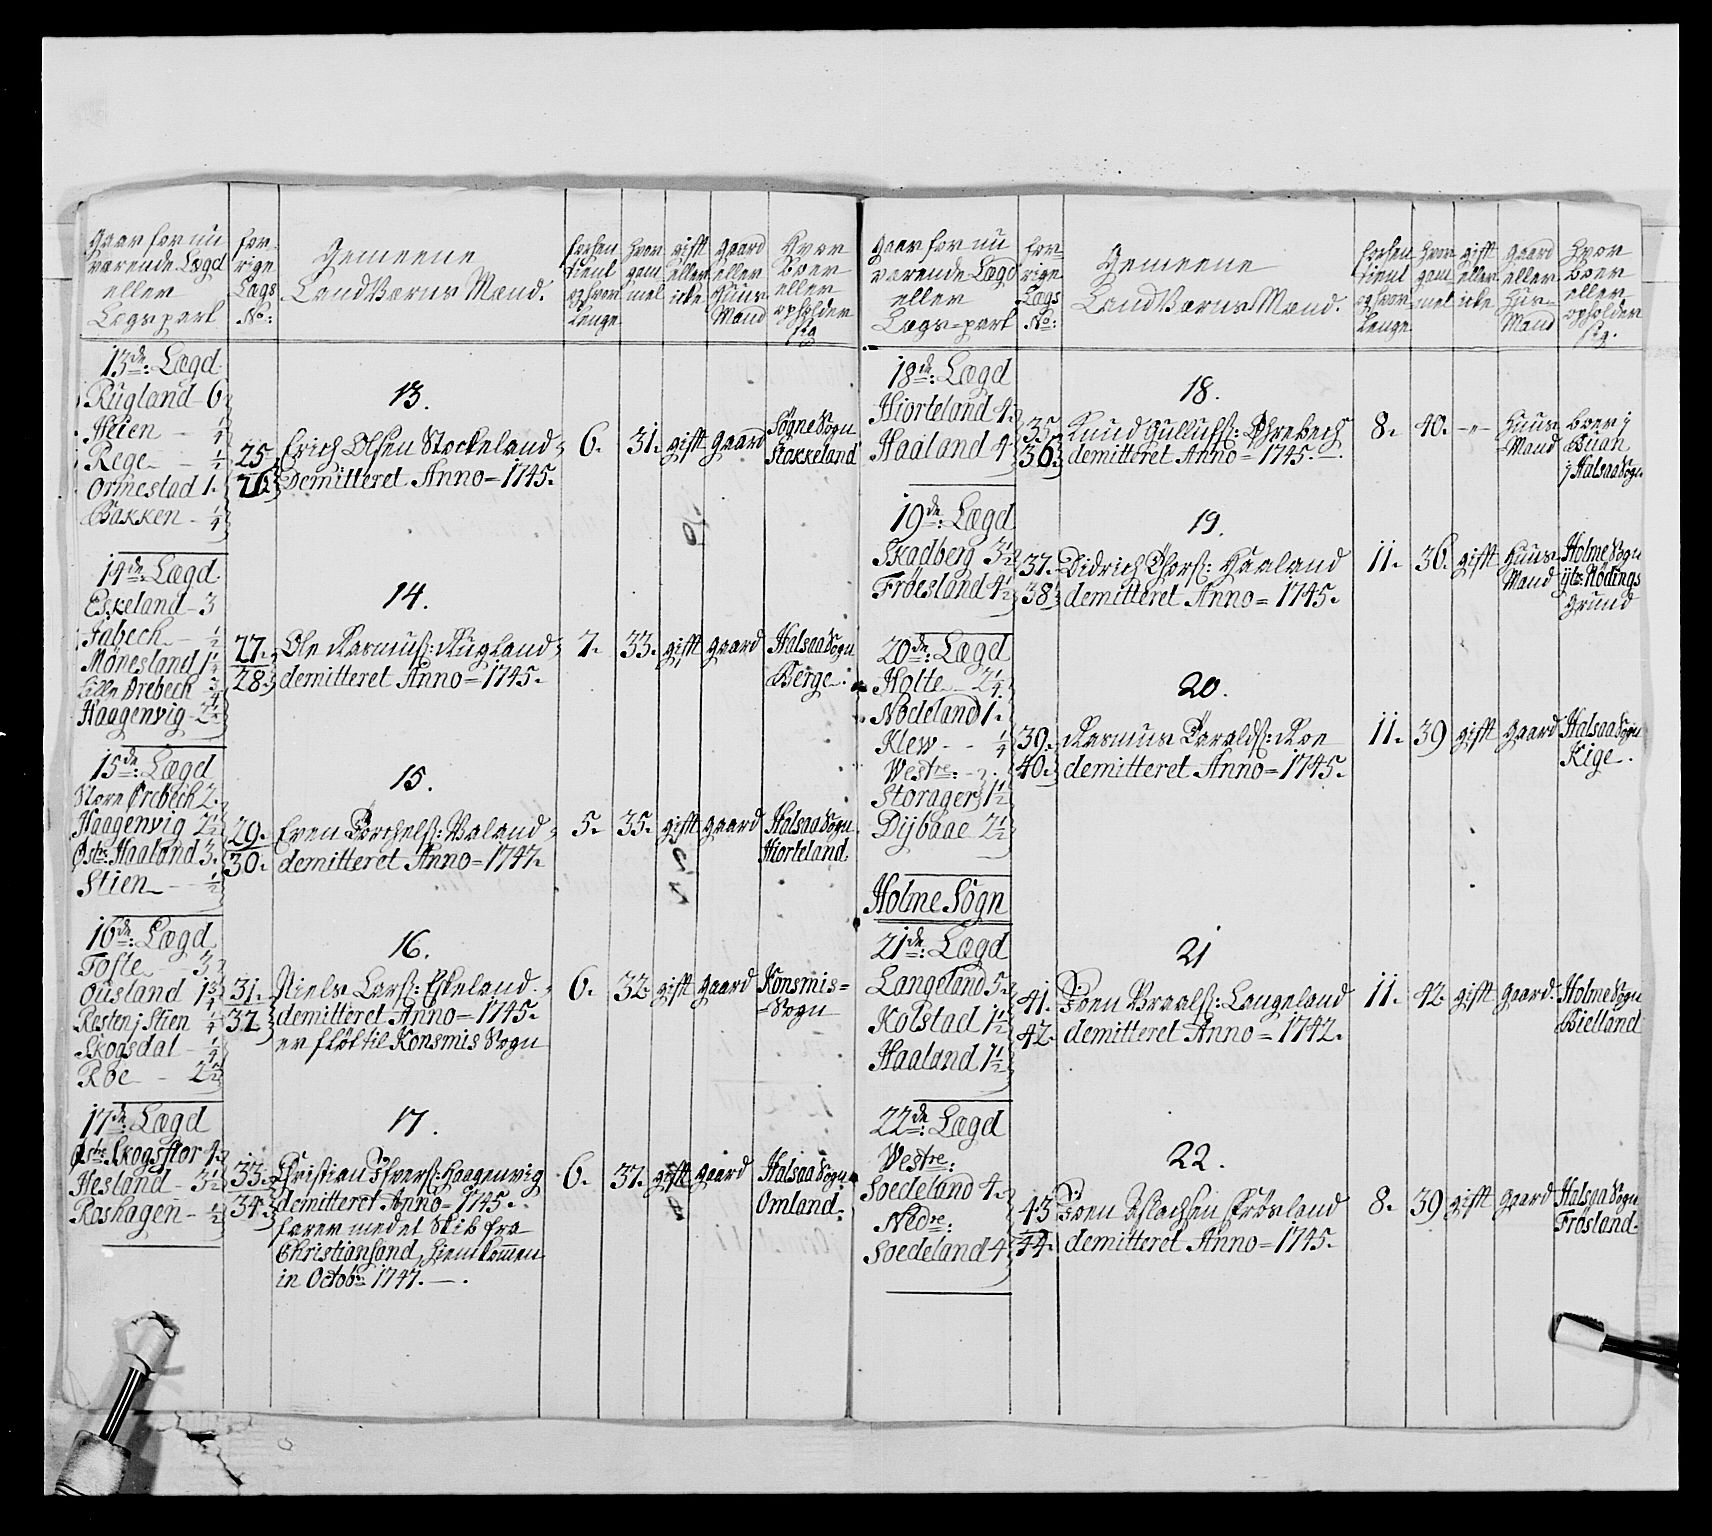 Gaar for nu
værende Lægd
eller
Lægspart
For-
rige
Lægs
No:
Gemeene
LandVærns Mænd.
forhen
tient
og hvor
lenge
hvor
gam
mel
gift
eller
icke
gaard
eller
Huus
Mand
Hvor
boer
eller
opholder
sig
13de: Lægd
Rügland 6
Heien - 1/4
Rege - 1/2
Ormestad 1.
Bakken - 1/4
25
26
13.
Erich Olsen Stockeland
Demitteret Anno = 1745.
6.
31.
gift
gaard
Søgne Sogn
Stokkeland
14de: Lægd
Eskeland - 3
Fabech - 1/2
Mönesland 1 1/4
Lille Örebech 3/4
Haagenvig - 2 1/2
27.
28.
14.
Ole Rasmuss: Rugland
demitteret Anno = 1745.
7.
33.
gift
gaard
Halsaa Sogn
Berge.
15de: Lægd
Store Ørebech 2.
Haagenvig 2 1/2
Østre Haaland 3.
Stien - 1/2
29.
30.
15.
Even Torchels: Valand
demitteret Anno = 1747.
5.
35.
gift
gaard
Halsaa Sogn
Hiorteland.
16de: Lægd
Tofte - 3
Ousland 1 3/4
Resten j Stien 1/4
Skogsdal - 1/4
Röe - 2 1/2
31.
32
16.
Niels Lars: Eskeland.
demitteret Anno = 1745.
er flöt til Konsmis Sogn
6.
32.
gift
gaard
Konsmis=
=Sogn
17de: Lægd
Østre Skogsflor 4.
Hesland - 3 1/2
Roshagen - 1/2
33.
34.
17.
Christian Ifvers: Haagenvig
demitteret Anno = 1745.
farer med et Skib fra
Christiansand, hiemkommen
in Octobr: 1747.
6.
37.
gift
gaard
Halsaa Sogn
Omland.
Gaar for nu
værende Lægd
eller
Lægs=part
For-
rige
Lægs
No:
Gemeene
LandVærns Mænd.
forhen
tient
og hvor
lenge
hvor
gam
mel
gift
eller
icke
gaard
eller
Hus-
Mand
Hvor
boer
eller
opholder
sig.
18de: Lægd
Hiorteland 4.
Haaland 4
35.
36.
18.
Knud Gulluffs: Ørebech
demitteret Anno = 1745.
8.
40.
-"-
Huus
=Mand
boer j
Buan
j Halsaa Sogn
19de: Lægd
Skadberg 3 1/2
Fröesland 4 1/2
37.
38.
19.
Didrich Thors: Haaland
demitteret Anno = 1745.
11.
36.
gift
Huus
Mand
Holme Sogn
Nödings
Grund
20de: Lægd
Holte - 2 1/4.
Nödeland 1.
Klew - - 1/4
Westre: - 2.
Storager 1 1/2
Dijbaae 2 1/2
39.
40.
20.
Rasmus Taralds: Roe
demitteret Anno = 1745.
11.
39
gift
gaard
Halsaa Sogn
Kige.
Holme Sogn
21de: Lægd
Langeland 5.
Kolstad 1 1/2
Haaland 1 1/2
41.
42.
21
Toen Braals: Langeland
demitteret Anno = 1742.
11.
42
gift
gaard.
Holme Sogn
Bielland
22de: Lægd
Westre:
Soedeland 4.
Nedre:
Soedeland 4
43
44.
22.
Toen Aslachsen Frösland
demitteret Anno = 1745.
8.
39
gift
gaard
Halsaa Sogn
Frösland.